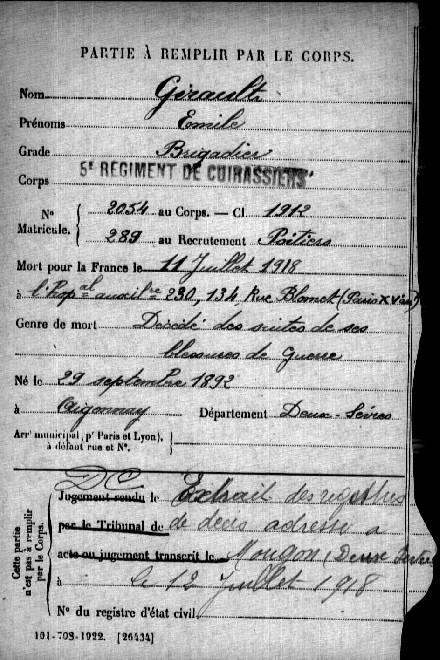 PARTIE À REMPLIR PAR LE CORPS.
Nom Girault
Prénoms Emile
Grade Brigadier
Corps 5e RÉGIMENT DE CUIRASSIERS
Nº Matricule. { 2054 au Corps. — Cl 1912
289 au Recrutement Poitiers
Mort pour la France le 11 Juillet 1918
à l'hopal auxilre 230, 134 Rue Blomet (Paris XV
Genre de mort Décédé des suites de ses
blessures de Guerre
Né le 29 septembre 1892
à Aigonnay Département Deux-Sèvres
Arr' municipal (p' Paris et Lyon), à défaut rue et Nº.
DC
Jugement rendu le Extrait des registres
par le Tribunal de de décès adressé a
acte ou jugement transcrit le Mougon (Deux Sèvres
à le 12 Juillet 1918
Nº du registre d'état civil
Cette partie n'est pas à remplir par le Corps.
101-708-1922. [26434]